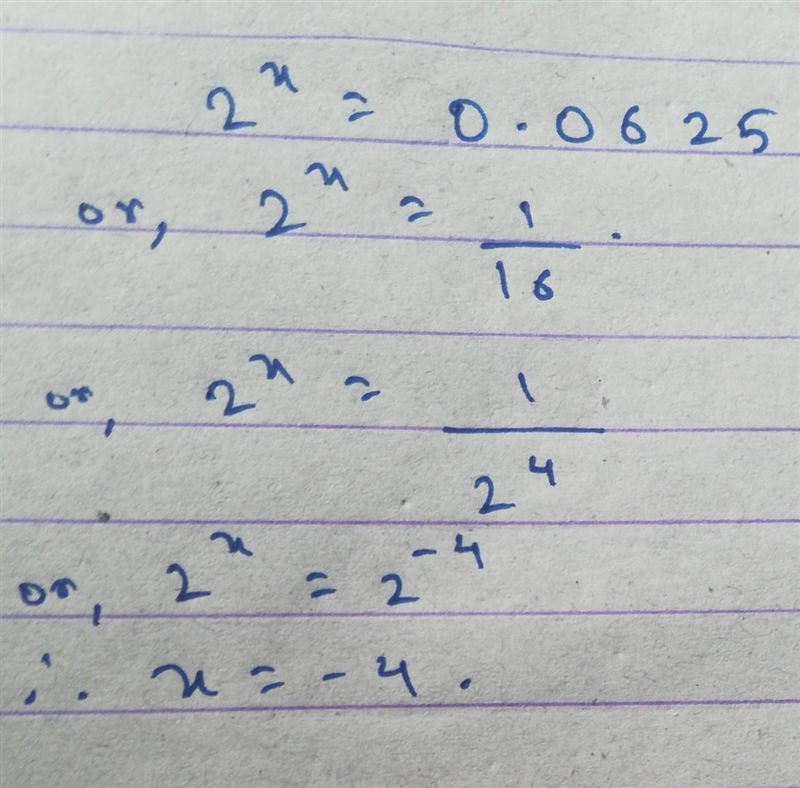 2^x = 0.0625
or, 2^x = 1/16.
or, 2^x = 1/2^4
or, 2^x = 2^-4
∴ x = -4.